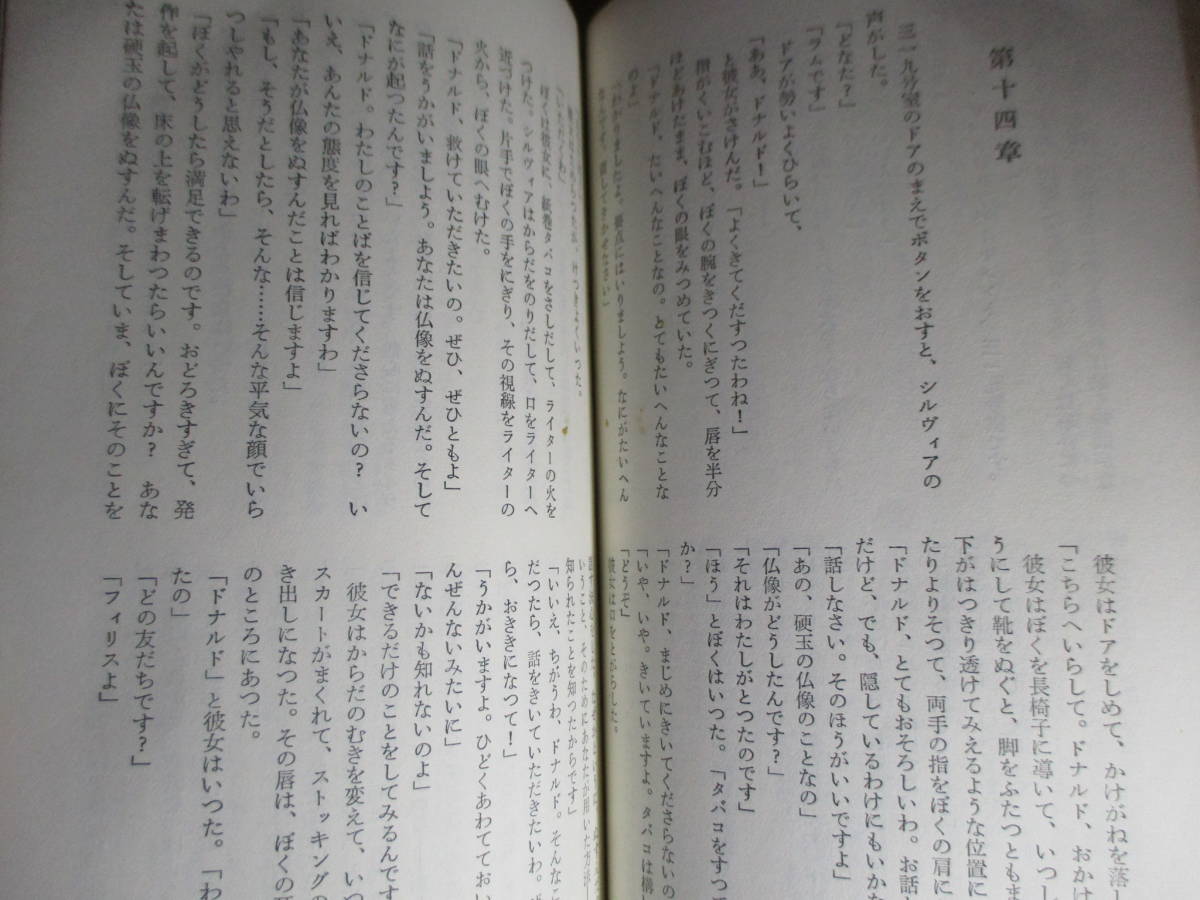 第十四章
三一九号室のドアのまえでボタンをおすと、シルヴィアの
声がした。
「どなた？」
「ラムです」
ドアが勢いよくひらいて、
「ああ、ドナルド！」
と彼女がさけんだ。「よくきてくだすつたわね！」
指がくいこむほど、ぼくの腕をきつくにぎつて、唇を半分
ほどあけたまま、ぼくの眼をみつめていた。
「ドナルド、たいへんなことなの。とてもたいへんなことな
のよ」
「わかりましたよ。要点にはいりましよう。なにがたいへん
彼女はドアをしめて、かけがねを落し
「こちらへいらして。ドナルド、おかけ
彼女はぼくを長椅子に導いて、いつし
うにして靴をぬぐと、脚をふたつともま
下がはつきり透けてみえるような位置に
たりよりそつて、両手の指をぼくの肩に
「ドナルド、とてもおそろしいわ。お話
だけど、でも、隠しているわけにもいかな
「話しなさい。そのほうがいいですよ」
「あの、硬玉の仏像のことなの」
「仏像がどうしたんです？」
「それはわたしがとつたのです」
「ほう」とぼくはいつた。「タバコをすつて
か？」
「ドナルド、まじめにきいてくださらないの
「いや、いや。きいていますよ。タバコは構
「どうぞ」
彼女は口をとがらした。
ぼくは彼女に、紙巻タバコをさしだして、ライターの火を
つけた。シルヴィアはからだをのりだして、口をライターへ
近づけた。片手でぼくの手をにぎり、その視線をライターの
火から、ぼくの眼へむけた。
「ドナルド、救けていただきたいの。ぜひ、ぜひともよ」
「話をうかがいましよう。あなたは仏像をぬすんだ。そして
なにが起つたんです？」
「ドナルド。わたしのことばを信じてくださらないの？　い
いえ、あんたの態度を見ればわかりますわ」
「あなたが仏像をぬすんだことは信じますよ」
「もし、そうだとしたら、そんな……そんな平気な顔でいら
つしやれると思えないわ」
「ぼくがどうしたら満足できるのです。おどろきすぎて、発
作を起して、床の上を転げまわつたらいいんですか？　あな
たは硬玉の仏像をぬすんだ。そしていま、ぼくにそのことを
いうこと、そのためにあなたが用いた方が
知られたことを知つたからです」
「いいえ、ちがうわ、ドナルド。そんなこ
だつたら、話をきいていただきたいわ。ぜ
ら、おききになつて！」
「うかがいますよ。ひどくあわてておい
んぜんないみたいに」
「ないかも知れないのよ」
「できるだけのことをしてみるんです
彼女はからだのむきを変えて、いつ
スカートがまくれて、ストッキングの
き出しになつた。その唇は、ぼくの
のところにあつた。
「ドナルド」と彼女はいつた。「わ
たの」
「どの友だちです？」
「フィリスよ」